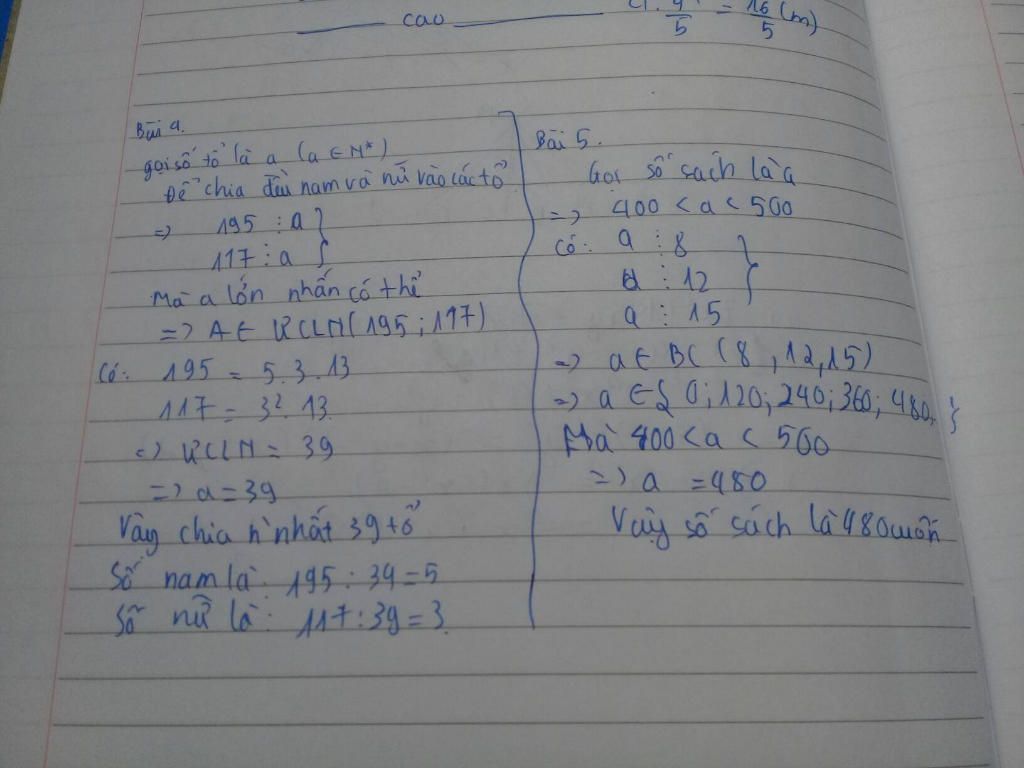 cao
4. 4/5 = 16/5 (m)
Bài 4.
gọi số tổ là a (a ∈ N*)
Để chia đều nam và nữ vào các tổ
=> 195 ⋮ a }
117 ⋮ a }
Mà a lớn nhất có thể
=> A ∈ ƯCLN(195 ; 117)
Có: 195 = 5.3.13
117 = 3².13.
=> ƯCLN = 39
=> a = 39
Vậy chia n' nhất 39 tổ
Số nam là: 195 : 39 = 5
Số nữ là: 117 : 39 = 3.
Bài 5.
Gọi số sách là a
=> 400 < a < 500
Có: a ⋮ 8 }
a ⋮ 12
a ⋮ 15
=> a ∈ BC (8 , 12, 15)
=> a ∈ { 0; 120; 240; 360; 480. }
Mà 400 < a < 500
=> a = 480
Vậy số sách là 480 cuốn